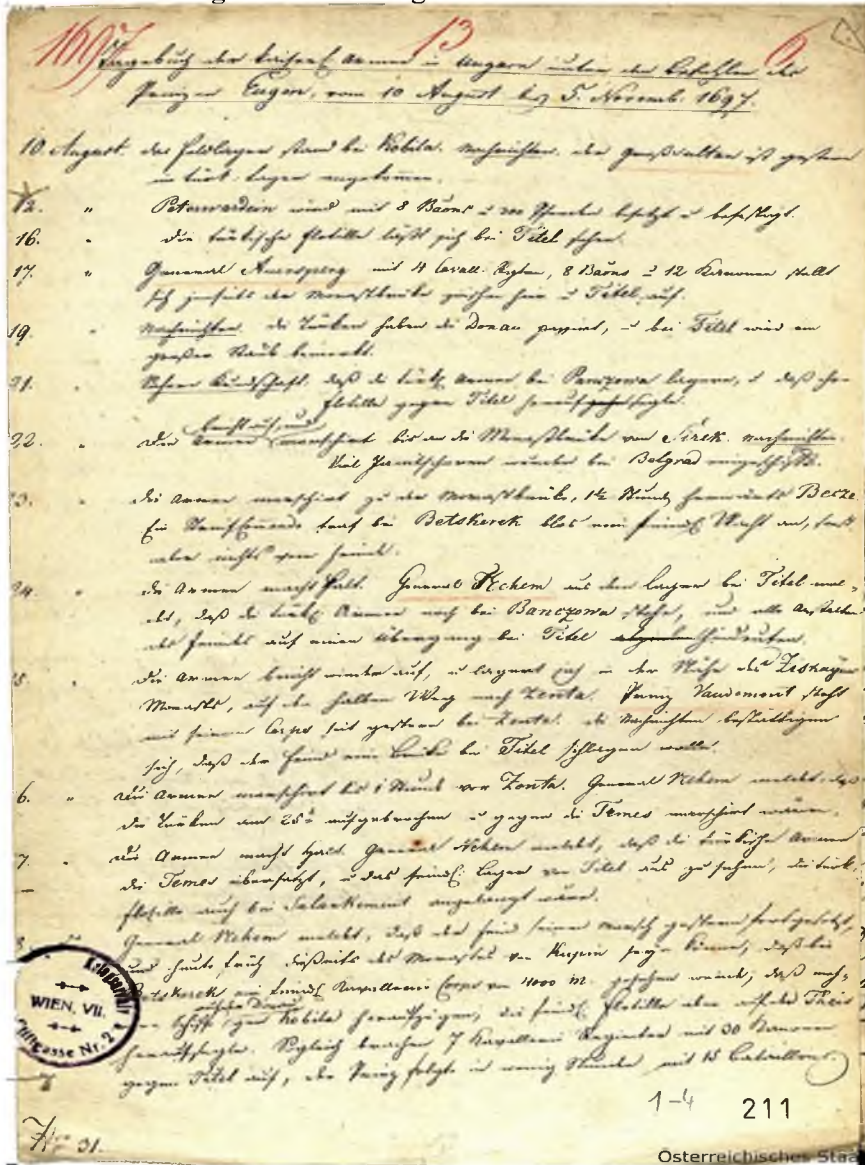 1697 13 6
Tagebuch der kaiserl. Armee in Ungarn unter den Befehlen des
Prinzen Eugen, vom 10 August bis 5. Novemb. 1697.
10. August. das Feldlager stand bei Kobila. Nachrichten. der Großvesier ist gestern
im türk. Lager angekommen.
12. " Peterwardein wird mit 8 Baons u 200 Pferden besetzt u befestigt.
16. " Die türkische Flotille läßt sich bei Titel sehen.
17. " General Auersperg mit 4 Cavall. Regten, 8 Baons u 12 Kanonen stellt
sich jenseits der Morastbrücke zwischen hier u Titel, auf.
19. " Nachrichten. die Türken haben die Donau passirt, u bei Titel wird ein
großer Staub bemerkt.
21. " daß die türk. Armee bei Panczowa lagere, u daß ihre
Flotille gegen Titel
22. " Die Armee bricht auf, und marschirt bis an die Morastbrücke von Sirek. Nachrichten.
Viel Janitscharen wurden bei Belgrad eingeschifft.
23. " die Armee marschirt zu der Morastbrücke, 1½ Stund Becze.
Ein Commando traf bei Betskerek blos eine feindl. Wacht an, sonst
aber nichts vom Feinde.
24. " die Armee macht Halt. General Nehem aus dem Lager bei Titel mel-
det, daß die türk. Armee noch bei Banczowa stehe, und alle Anstalten
des Feindes auf einen Übergang bei Titel hindeuten.
25. " Die Armee bricht wieder auf, u lagert sich in der Nähe des
Morasts, auf der halben Weg nach Zenta. Prinz Vaudemont steht
mit seinem Corps seit gestern bei Zenta. die Nachrichten bestättigen
sich, daß der Feind eine Brücke bei Titel schlagen wolle.
26. " die Armee marschirt bis 1 Stund vor Zenta. General Nehem meldet, daß
die Türken am 25t aufgebrochen u gegen die Temes marschirt wären.
27. " die Armee macht Halt. General Nehem meldet, daß die türkische Armee
die Temes übersetzt, u das feindl. Lager von Titel aus zu sehen, die türk.
Flotille auch bei Salankement angelangt wäre.
General Nehem meldet, daß der Feind seinen Marsch gestern fortgesetzt,
und heute früh diesseits des Morastes von
Betskerek ein feindl. Kavallerie Corps von 4000 M. gesehen wurde, daß
Schiffe gen Kobila die feindl. Flotille aber auf der Theis
heraufsegle. Sogleich brachen 7 Kavallerie Regimenter mit 30 Kanonen
gegen Titel auf, der Prinz folgte in wenig Stunden mit 15 Bataillons.
WIEN, VII.
Stiftgasse Nr. 2
1-4 211
31.
Österreichisches Staa